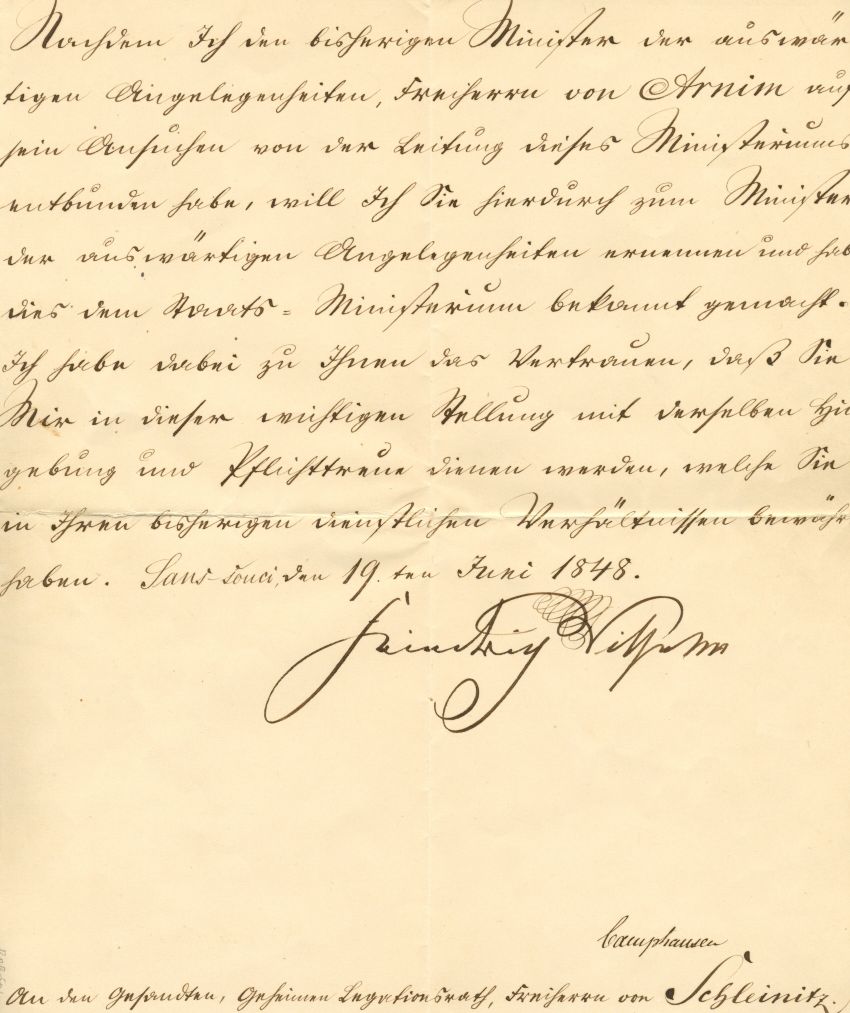 Nachdem Ich den bisherigen Minister der auswär
tigen Angelegenheiten, Freiherrn von Arnim auf
sein Ansuchen von der Leitung dieses Ministeriums
entbunden habe, will Ich Sie hierdurch zum Minister
der auswärtigen Angelegenheiten ernennen und hab
dies dem Staats= Ministerium bekannt gemacht.
Ich habe dabei zu Ihnen das Vertrauen, daß Sie
Mir in dieser wichtigen Stellung mit derselben Hin
gebung und Pflichttreue dienen werden, welche Sie
in Ihren bisherigen dienstlichen Verhältnissen bewähr
haben. Sans-souci, den 19. ten Juni 1848.
Friedrich Wilhelm
Camphausen
An den Gesandten, Geheimen Legationsrath, Freiherrn von Schleinitz.